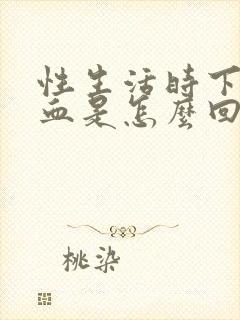 性生活时下
血是怎麼回
桃染